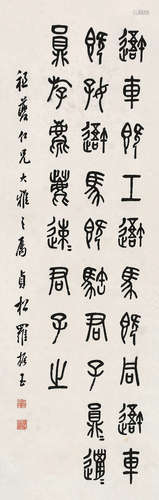 䢒車既工䢒馬既同䢒車
既好䢒馬既𩣡君子員邋=
員斿麀鹿速=君子之
仁兄大雅之屬 貞松羅振玉